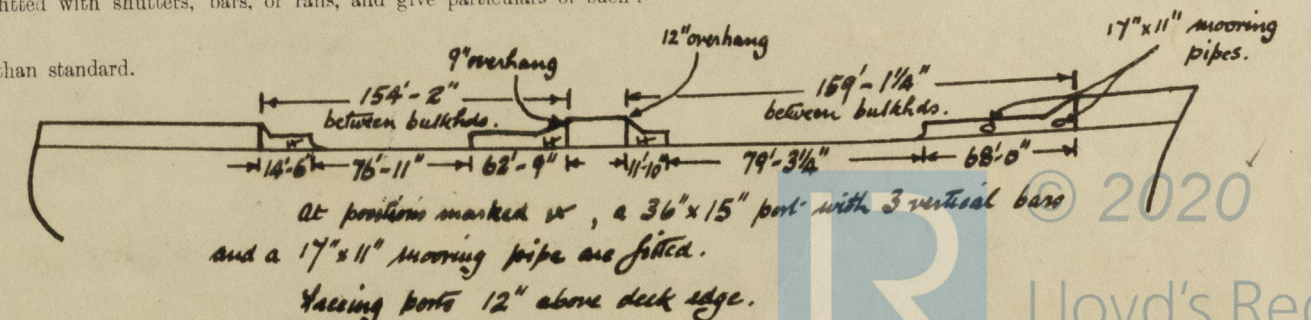 fitted with shutters, bars, or rails, and give particulars of such?
than standard.
9" overhang
12" overhang
17" x 11" mooring
pipes.
154'-2"
between bulkhds.
159'-1¼"
between bulkhds.
14'-6" 76'-11" 62'-9" 11'-10" 79'-3¼" 68'-0"
At positions marked x, a 36" x 15" port with 3 vertical bars
and a 17" x 11" mooring pipe are fitted.
Freeing ports 12" above deck edge.
© 2020
Lloyd's Reg